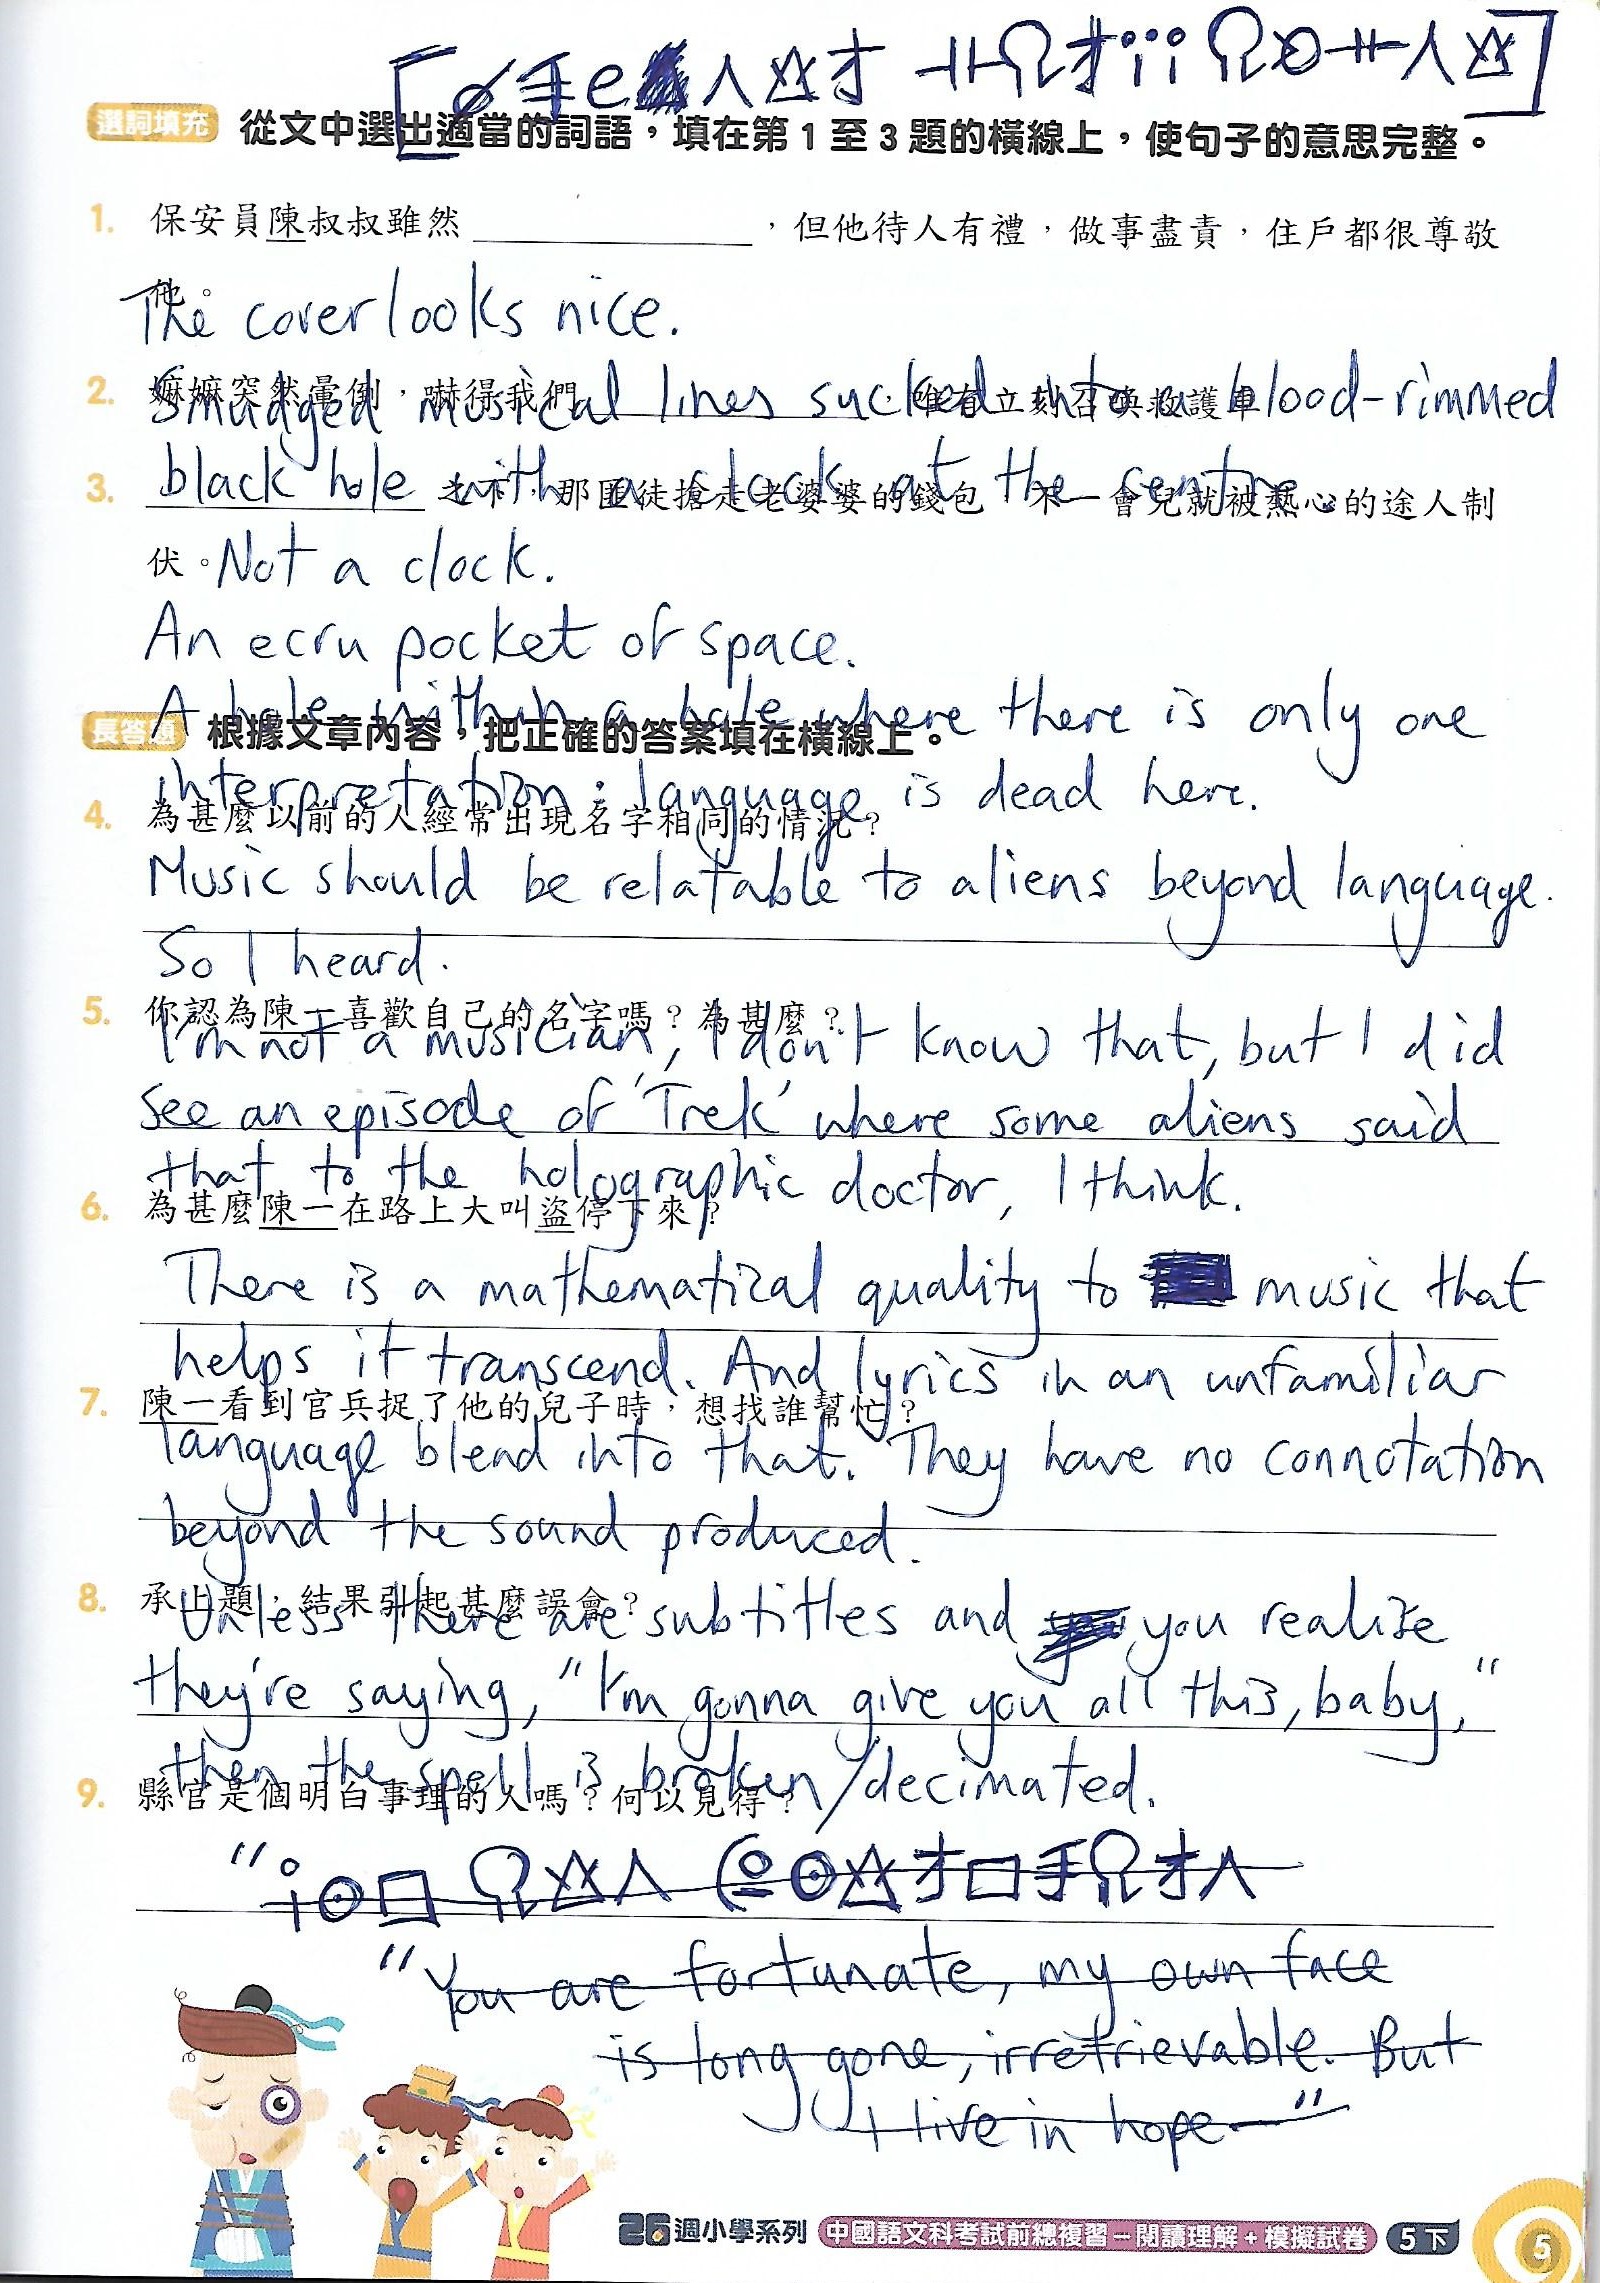 選詞填充 從文中選出適當的詞語，填在第 1 至 3 題的橫線上，使句子的意思完整。
1. 保安員陳叔叔雖然＿＿＿＿＿＿＿，但他待人有禮，做事盡責，住戶都很尊敬
他。
The cover looks nice.
2. 嫲嫲突然暈倒，嚇得我們＿＿＿＿＿＿＿，唯有立刻召喚救護車
Smudged musical lines sucked into a blood-rimmed
black hole with a clock at the centre.
3. ＿＿＿＿＿＿＿之下，那匪徒搶走老婆婆的錢包，不一會兒就被熱心的途人制
伏。
Not a clock.
An ecru pocket of space.
A hole within a hole where there is only one
長答題 根據文章內容，把正確的答案填在橫線上。
interpretation; language is dead here.
4. 為甚麼以前的人經常出現名字相同的情況？
Music should be relatable to aliens beyond language.
So I heard.
5. 你認為陳一喜歡自己的名字嗎？為甚麼？
I'm not a musician, I don't know that, but I did
see an episode of 'Trek' where some aliens said
that to the holographic doctor, I think.
6. 為甚麼陳一在路上大叫盜停下來？
There is a mathematical quality to music that
helps it transcend. And lyrics in an unfamiliar
7. 陳一看到官兵捉了他的兒子時，想找誰幫忙？
language blend into that. They have no connotation
beyond the sound produced.
8. 承上題，結果引起甚麼誤會？
Unless there are subtitles and you realize
they're saying, "I'm gonna give you all this, baby,"
then the spell is broken/decimated.
9. 縣官是個明白事理的人嗎？何以見得？
"You are fortunate, my own face
is long gone, irretrievable. But
I live in hope—"
26週小學系列 中國語文科考試前總複習－閱讀理解＋模擬試卷 5下 5